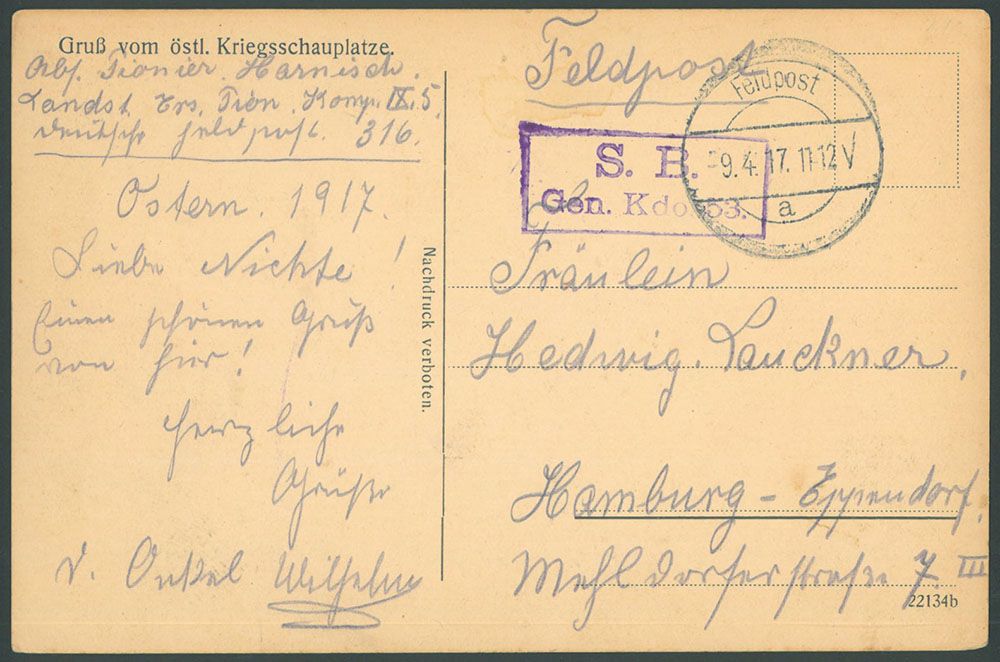 Gruß vom östl. Kriegsschauplatze.
Abs. Pionier. Harnisch.
Landst. Ers. Pion. Komp. IX. 5
deutsche Feldpost. 316.
Ostern. 1917.
Liebe Nichte!
Einen schönen Gruß
von hier!
Herzliche
Grüße
d. Onkel Wilhelm
Nachdruck verboten.
Feldpost
Feldpost
9.4.17. 11-12 V
a
S. B.
Gen. Kdo. 53.
Fräulein
Hedwig. Lauckner,
Hamburg - Eppendorf.
Mehldorferstraße 7. III
22134b